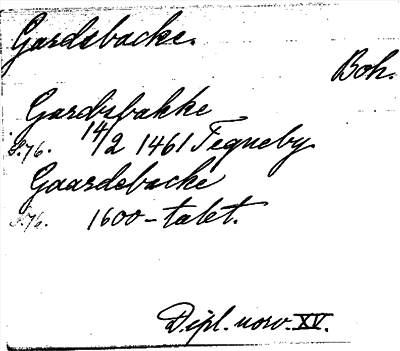 Gardsbacke.
Boh.
Gardsbakke
S.76. 14/2 1461 Tegneby
Gaardsbacke
S.76. 1600-talet.
Dipl. norv. XV.